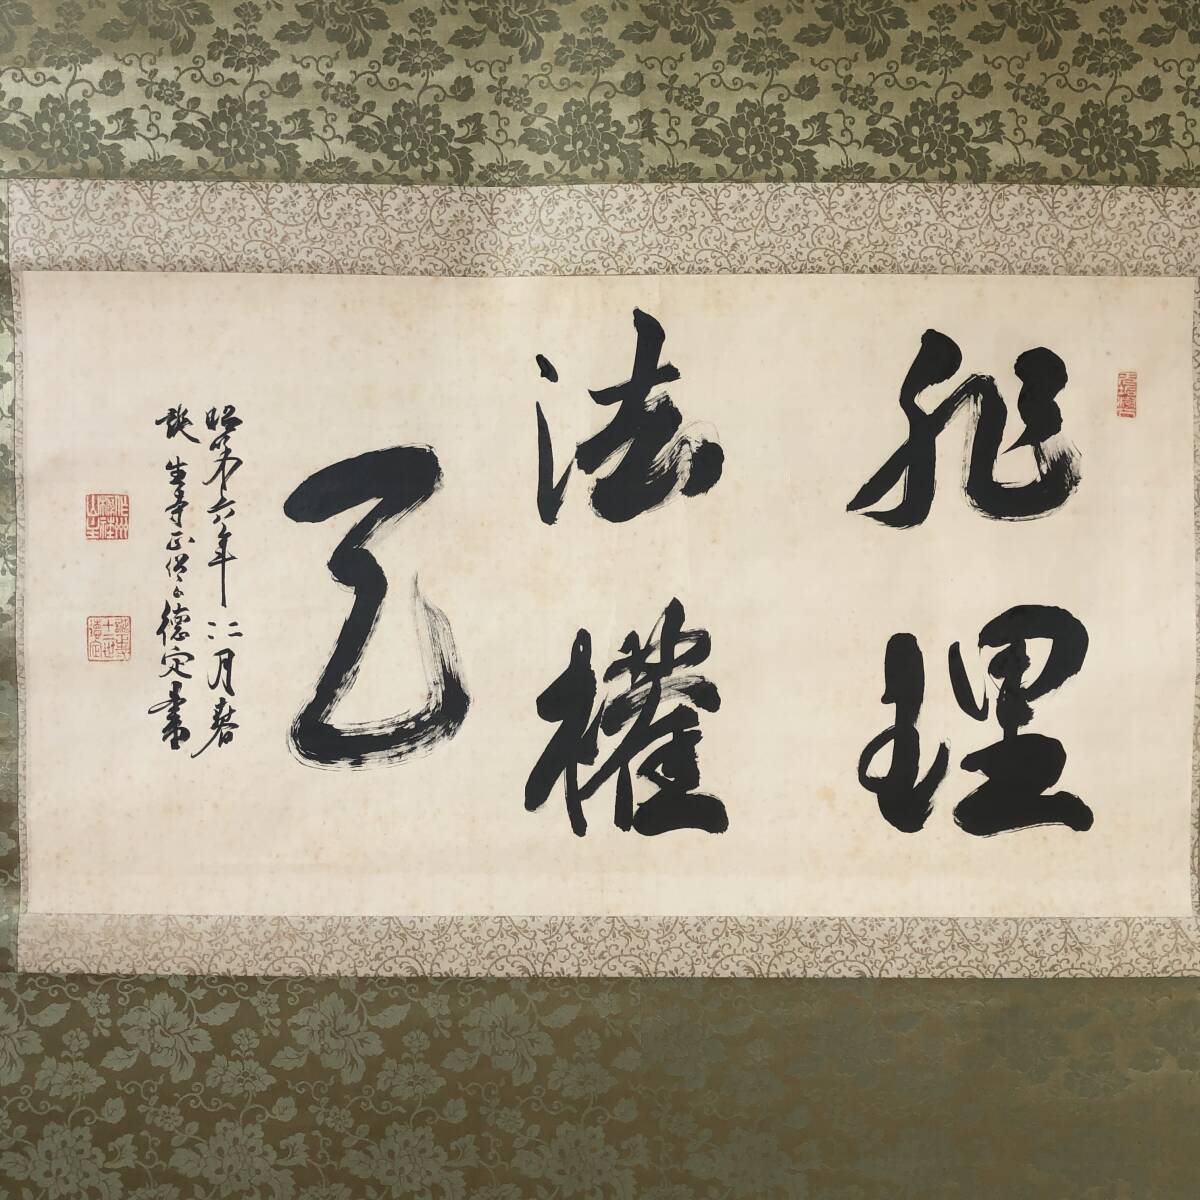 非理
法權
天
昭和六年二月春
誕生寺正僧正德定書